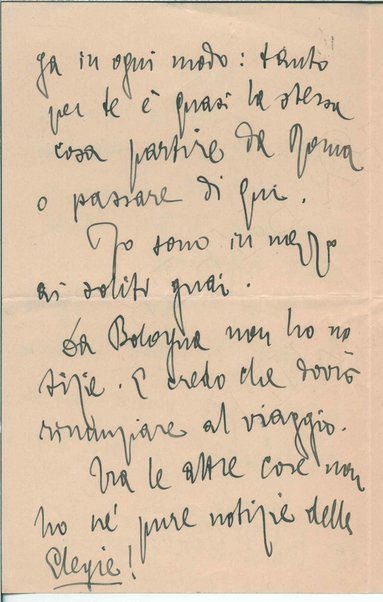 ga in ogni modo: tanto
per te è quasi la stessa
cosa partire da Roma
o passare di qui.
Io sono in mezzo
ai soliti guai.
Da Bologna non ho no
tizie. E credo che dovrò
rinunziare al viaggio.
Tra le altre cose non
ho né pure notizie delle
Elegie!